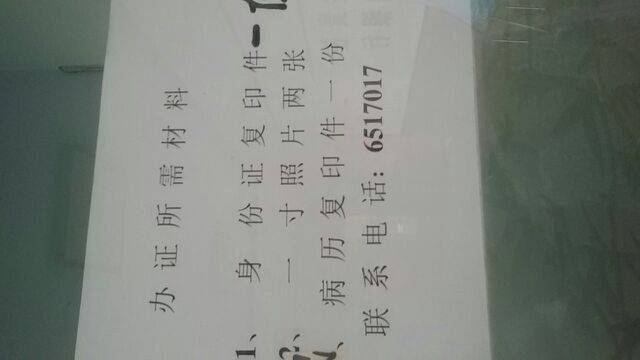 办证所需材料
1、身份证复印件一
2、一寸照片两张
病历复印件一份
联系电话:6517017